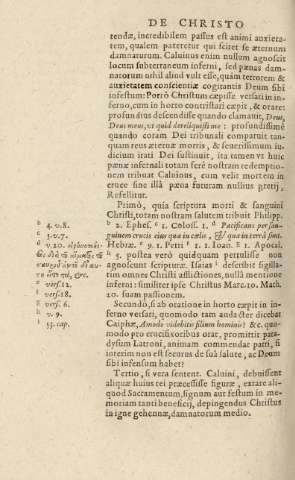 DE CHRISTO
tendæ, incredibilem passus est animi anxieta-
tem, qualem pateretur qui sciret se æternum
damnatum. Caluinus enim nullum agnoscit
locum subterraneum inferni, sed pœnas dam-
natorum nihil aliud vult esse, quàm terrorem &
anxietatem conscientiæ cogitantis Deum sibi
infestum: Porrò Christum cœpisse versari in in-
ferno, cum in horto contristari cœpit, & orare:
profundius descendisse quando clamauit, Deus,
Deus meus, vt quid dereliquisti me: profundissimè
quando coram Dei tribunali comparuit tan-
quam reus æternæ mortis, & seuerissimum iu-
dicium irati Dei sustinuit, ita tamen vt huic
pœnæ infernali totam ferè nostram redemptio-
nem tribuat Caluinus, cum velit mortem in
cruce sine illa pœna futuram nullius pretij,
Refellitur.
Primò, quia scriptura morti & sanguini
Christi, totam nostram salutem tribuit Philipp.
b 2. Ephes. c 1. Coloss. 1. d Pacificans per san-
guinem crucis eius quæ in cælis, & quæ in terra sunt.
Hebræ. e 9. 1. Petri f 1. 1. Ioan. g 1. Apocal.
h 5. postea verò quidquam pertulisse non
agnoscunt scripturæ. Isaias i describit sigilla-
tim omnes Christi afflictiones, nulla mentione
inferni: similiter ipse Christus Marc. 10. Math.
20. suam passionem.
Secundo, si ab oratione in horto cœpit in in-
ferno versari, quomodo tam audacter dicebat
Caiphæ, Amodo videbitis filium hominis? &c. quo-
modo pro crucifixoribus orat, promittit para-
dysum Latroni, animam commendat patri, si
interim non est securus de suâ salute, ac Deum
sibi infensum habet?
Tertio, si vera sentent. Caluini, debuissent
aliquæ huius rei præcessisse figuræ, extare ali-
quod Sacramentum, signum aut festum in me-
moriam tanti beneficij, depingendus Christus
in igne gehennæ, damnatorum medio.
b 4. v. 8.
c 5. v. 7.
d v. 20.
e vers. 12.
f vers. 18.
g vers. 6.
h v. 9.
i 53. cap.